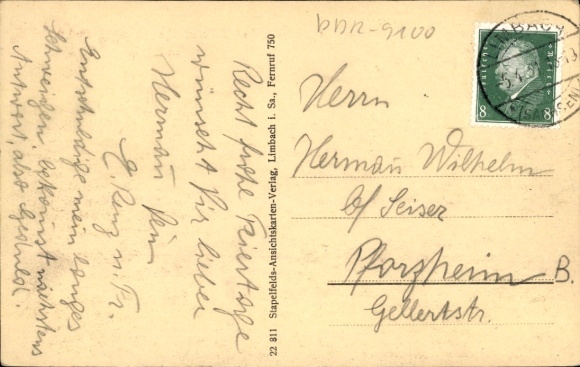 DDR-9100
Recht frohe Feiertage
wünscht Dir lieber
Hermann Dein
E. Renz n. Fr.
Entschuldige mein langes
Schweigen, bekomst nächstens
Antwort, also Geduld!
22 811 Stapelfelds-Ansichtskarten-Verlag, Limbach i. Sa., Fernruf 750
LIMBACH
(SACHSEN)
8 8
Herrn
Herman Wilhelm
b/ Seiser
Pforzheim B.
Gellertstr.